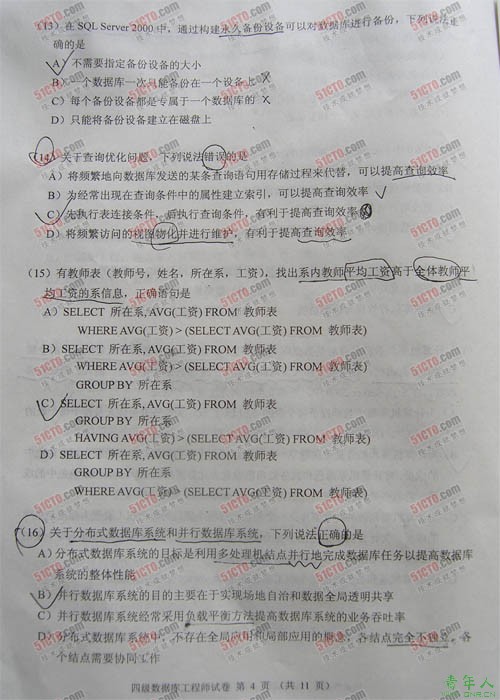 (13) 在 SQL Server 2000 中，通过构建永久备份设备可以对数据库进行备份，下列说法正
确的是
A) 不需要指定备份设备的大小
B) 一个数据库一次只能备份在一个设备上
C) 每个备份设备都是专属于一个数据库的
D) 只能将备份设备建立在磁盘上
(14) 关于查询优化问题，下列说法错误的是
A) 将频繁地向数据库发送的某条查询语句用存储过程来代替，可以提高查询效率
B) 为经常出现在查询条件中的属性建立索引，可以提高查询效率
C) 先执行表连接条件，后执行查询条件，有利于提高查询效率
D) 将频繁访问的视图物化并进行维护，有利于提高查询效率
(15) 有教师表（教师号，姓名，所在系，工资），找出系内教师平均工资高于全体教师平
均工资的系信息，正确语句是
A) SELECT 所在系, AVG(工资) FROM 教师表
WHERE AVG(工资) > (SELECT AVG(工资) FROM 教师表)
B) SELECT 所在系, AVG(工资) FROM 教师表
WHERE AVG(工资) > (SELECT AVG(工资) FROM 教师表)
GROUP BY 所在系
C) SELECT 所在系, AVG(工资) FROM 教师表
GROUP BY 所在系
HAVING AVG(工资) > (SELECT AVG(工资) FROM 教师表)
D) SELECT 所在系, AVG(工资) FROM 教师表
GROUP BY 所在系
WHERE AVG(工资) > (SELECT AVG(工资) FROM 教师表)
(16) 关于分布式数据库系统和并行数据库系统，下列说法正确的是
A) 分布式数据库系统的目标是利用多处理机结点并行地完成数据库任务以提高数据库
系统的整体性能
B) 并行数据库系统的目的主要在于实现场地自治和数据全局透明共享
C) 并行数据库系统经常采用负载平衡方法提高数据库系统的业务吞吐率
D) 分布式数据库系统中，不存在全局应用和局部应用的概念，各结点完全不独立，各
个结点需要协同工作
四级数据库工程师试卷 第 4 页 （共 11 页）
青年人